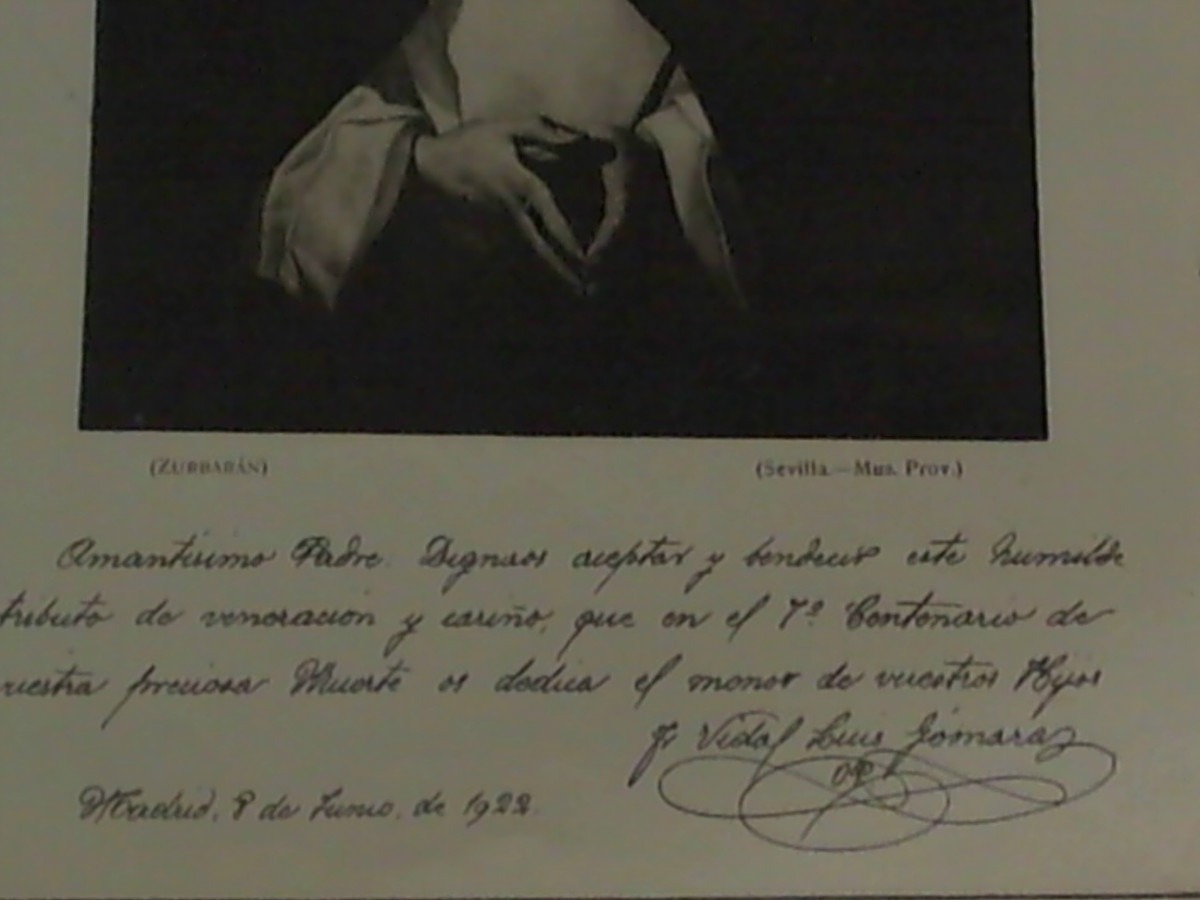 (ZURBARÁN)
(Sevilla.—Mus. Prov.)
Amantísimo Padre. Dignaos aceptar y bendecir este humilde
tributo de veneración y cariño, que en el 7º Centenario de
vuestra preciosa Muerte os dedica el menor de vuestros Hijos
Fr Vidal Luis Gómara
op
Madrid, 8 de Junio, de 1922.